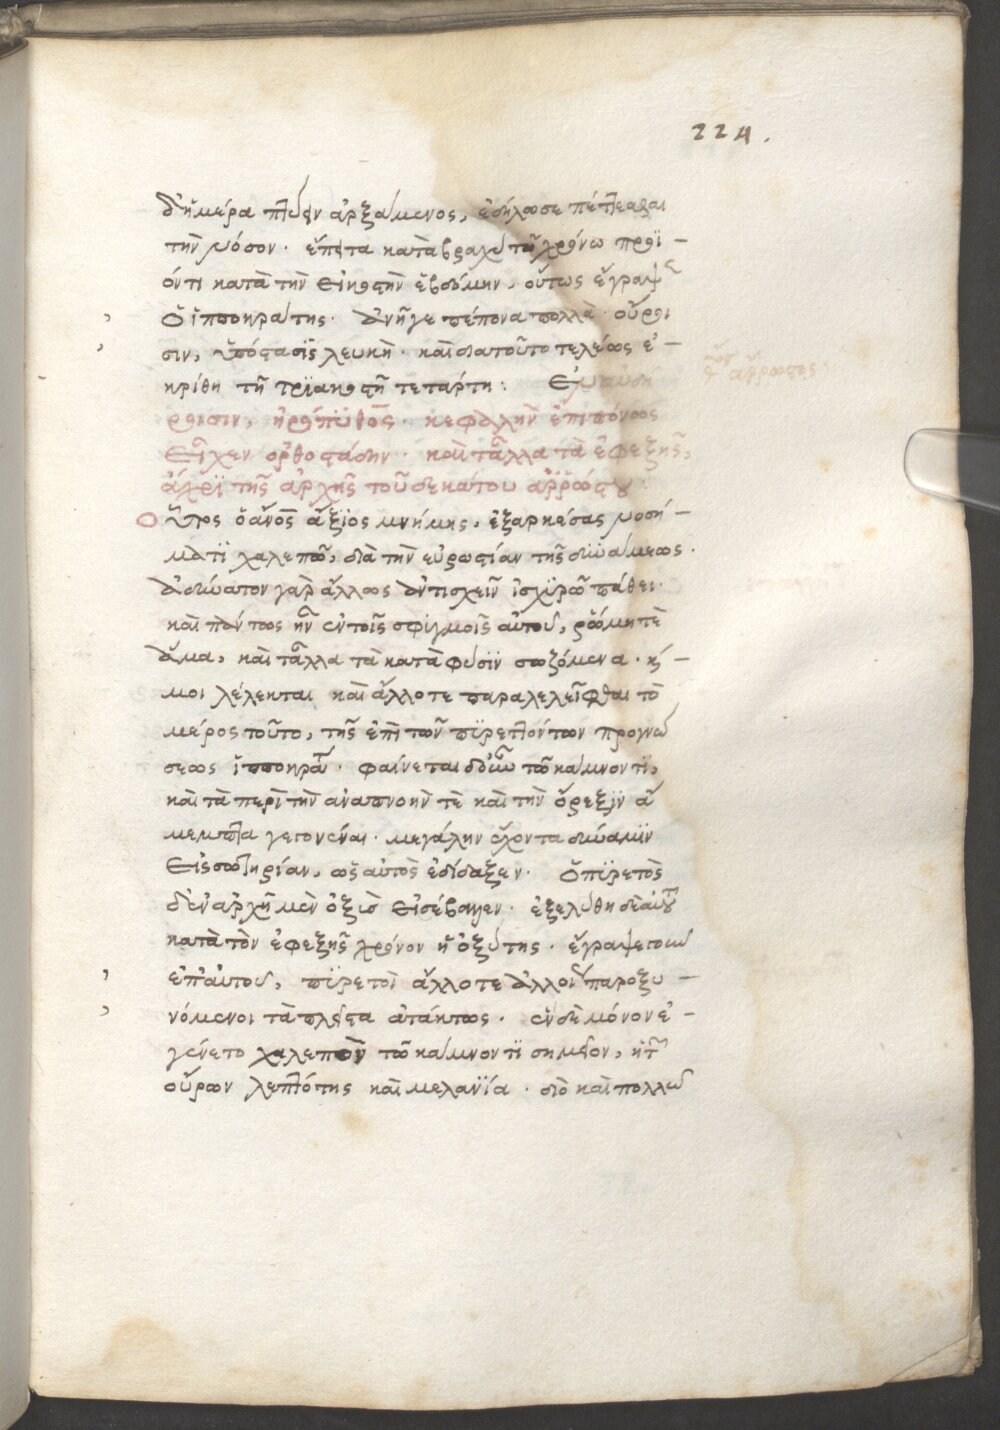 224.
δ' ἡμέρα πτύειν ἀρξάμενος, ἐδήλωσε πέττεσθαι
τὴν νόσον· ἔπειτα κατὰ βραχὺ τῶ χρόνω προϊ-
όντι κατὰ τὴν εἰκοστὴν ἑβδόμην, οὕτως ἔγραψεν
ὁ ἱπποκράτης· ἀνῆγε πέπονα πολλά· οὔροι
σιν, ὑπόστασις λευκή· καὶ διατοῦτο τελέως ἐ-
κρίθη τῆ τριακοστῆ τετάρτη:
κεφαλὴν ἐπιπόνως
εἶχεν ὀρθοστάδην· καὶ τἆλλα τὰ ἐφεξῆς,
ἄχρι τῆς ἀρχῆς τοῦ δεκάτου ἀρρώστου.
Οὗτος ὁ ἄνος ἄξιος μνήμης, ἐξαρκέσας νοσή-
ματι χαλεπῶ, διὰ τὴν εὐρωστίαν τῆς δυνάμεως·
ἀδύνατον γὰρ ἄλλως ἀντισχεῖν ἰσχυρῶ πάθει·
καὶ πάντως ἦν ἐν τοῖς σφυγμοῖς αὐτοῦ, ῥώμη τὲ
ἅμα, καὶ τἆλλα τὰ κατὰ φύσιν σωζόμενα· κἀ-
μοι λέλεκται καὶ ἄλλοτε παραλελεῖφθαι τὸ
μέρος τοῦτο, τῆς ἐπὶ τῶν πυρεττόντων προγνώ
σεως ἱπποκράτει· φαίνεται δ' οὖν τῶ κάμνοντι,
καὶ τὰ περὶ τὴν ἀναπνοήν τὲ καὶ τὴν ὄρεξιν ἄ
μεμπτα γεγονέναι· μεγάλην ἔχοντα δύναμιν
εἰς σωτηρίαν, ὡς αὐτὸς ἐδίδαξεν· ὁ πυρετὸς
δ' ἐν ἀρχῆ μὲν ὀξὺς εἰσέβαλεν· ἐξελύθη δὲ αὐτοῦ
κατὰ τὸν ἐφεξῆς χρόνον ἡ ὀξύτης· ἔγραψε γοῦν
ἐπ' αὐτοῦ, πυρετοὶ ἄλλοτε ἀλλοῖοι παροξυ-
νόμενοι τὰ πλεῖστα ἀτάκτως· ἓν δὲ μόνον ἐ-
γένετο χαλεπὸν τῶ κάμνοντι σημεῖον, ἡ τῶν
οὔρων λεπτότης καὶ μελανία· διὸ καὶ πολλῶ